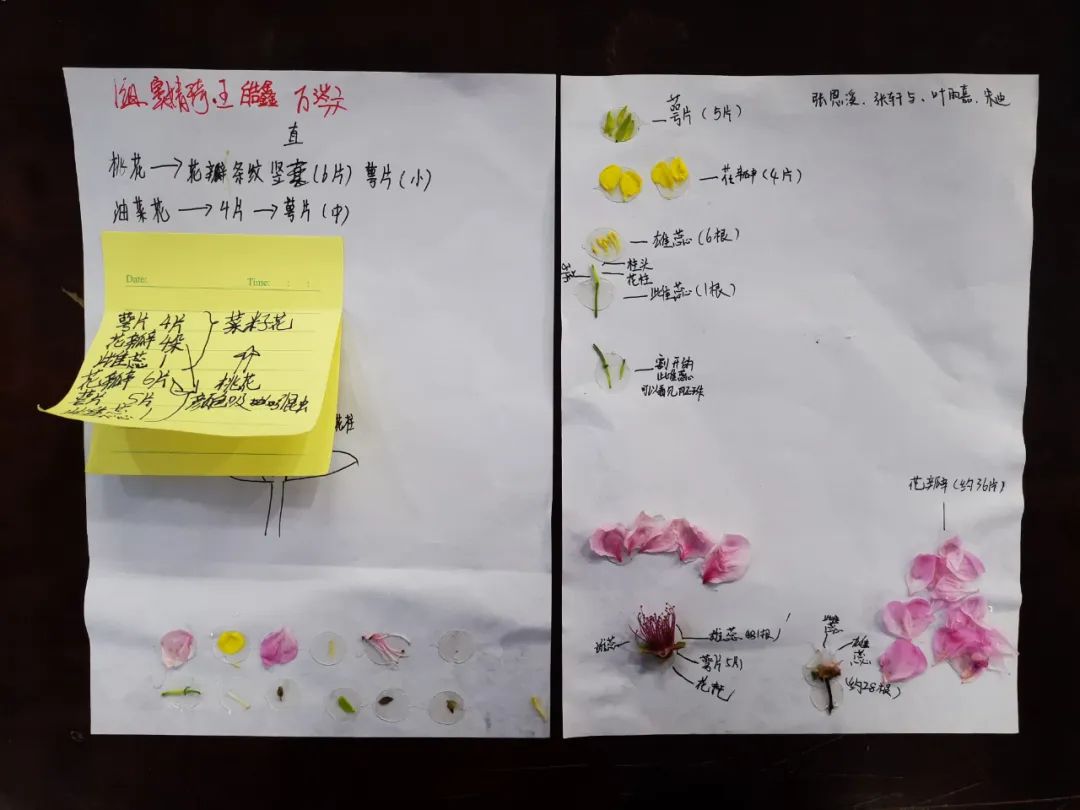 直
桃花→花瓣条纹竖(6片) 萼片(小)
油菜花→4片→萼片(中)
Date: Time: : :
萼片 4片
花瓣 4朵
雌蕊 1
菜籽花
花瓣 6片
桃花
萼片 5片
雌蕊 1
花柱
张恩溪、张轩与、叶雨嘉、朱迪
萼片(5片)
花瓣(4片)
雄蕊(6根)
柱头
花柱
雌蕊(1根)
割开的
雌蕊
可以看见
花瓣(约36片)
雌蕊
雄蕊
萼片5片
花托
雌蕊
雄蕊
(约28根)